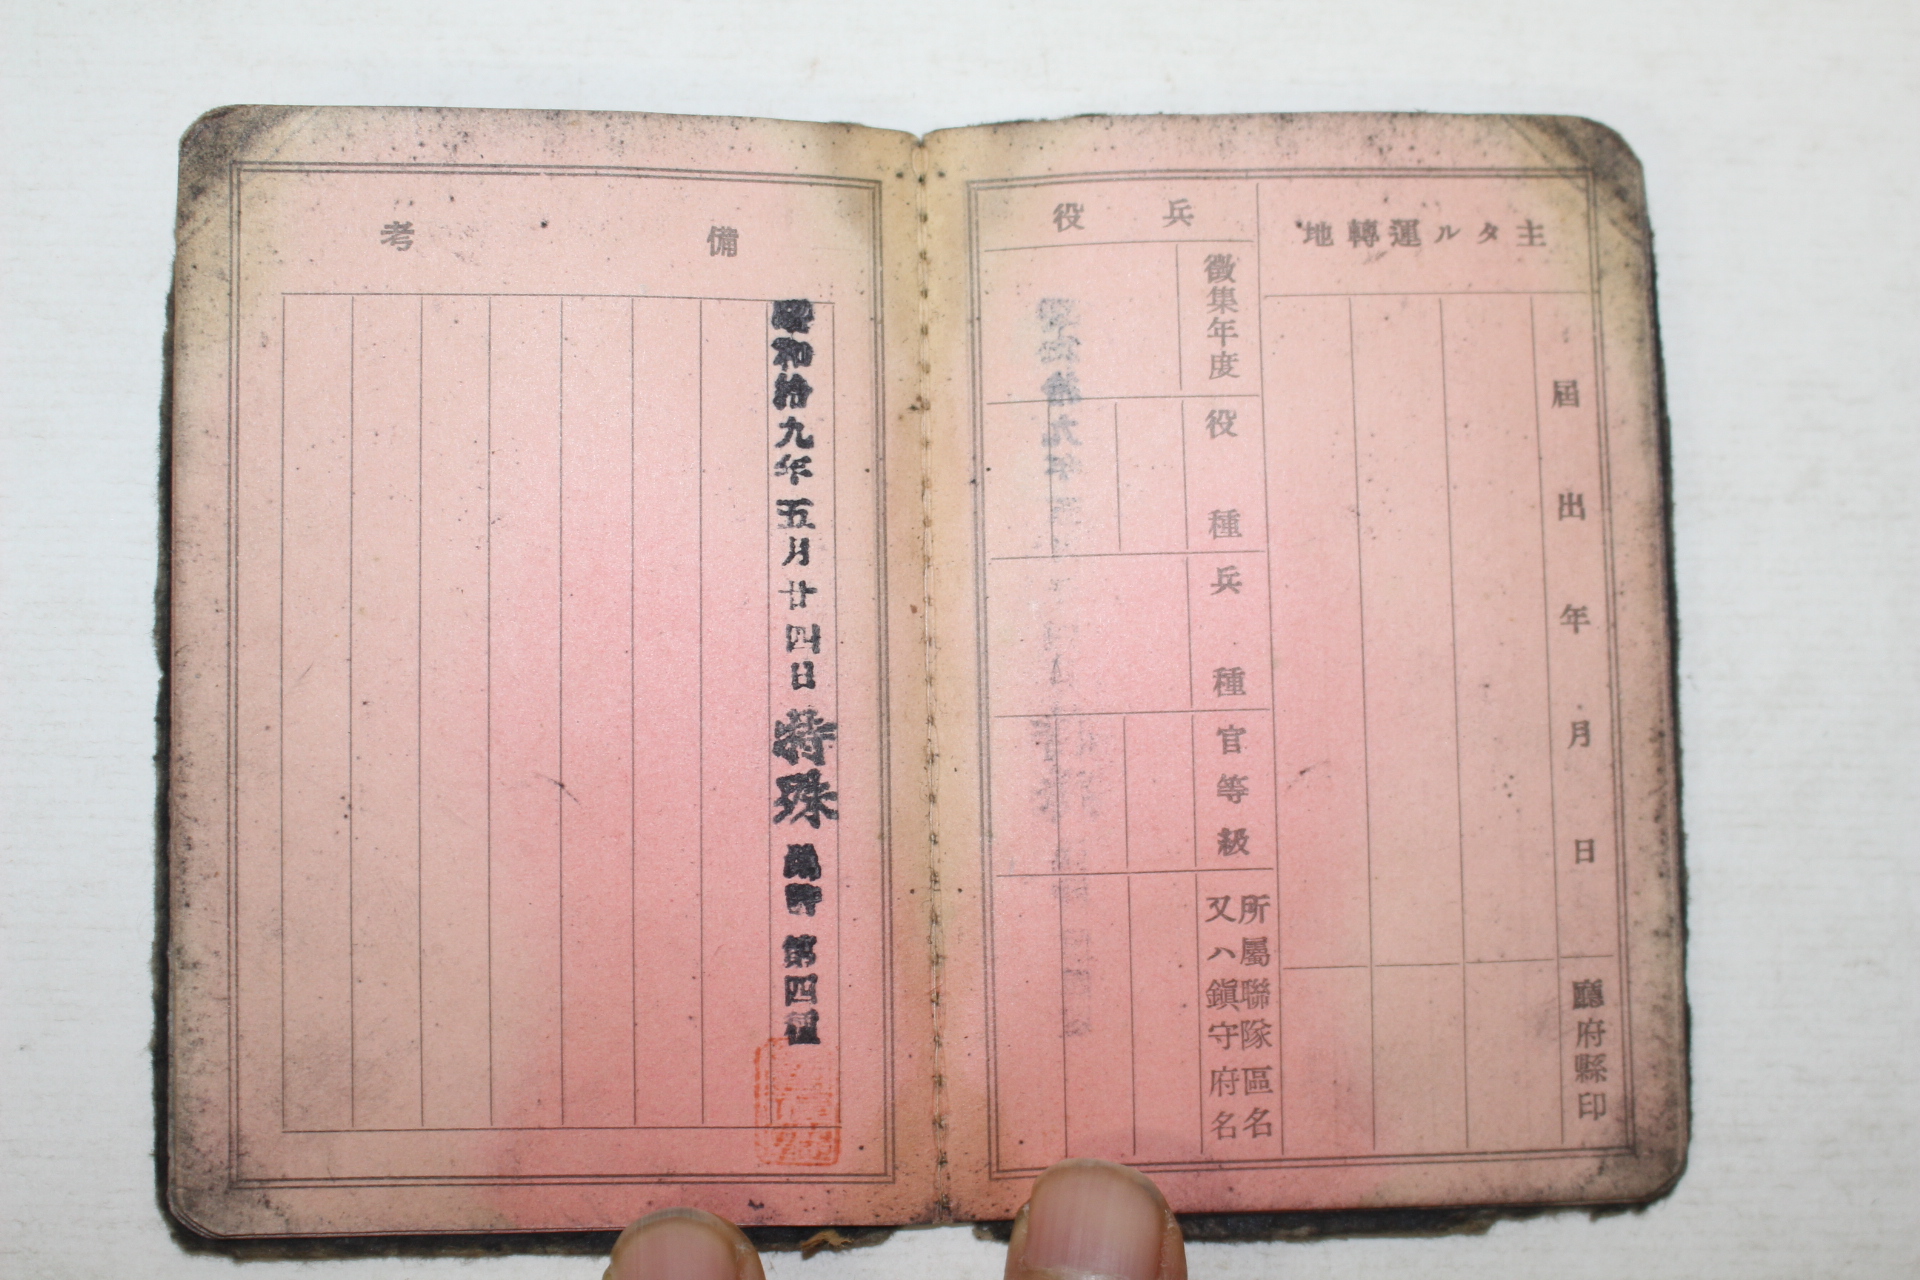 主タル運轉地
屆出年月日
廳府縣印
兵役
徵集年度
役種
兵種
官等級
所屬聯隊區名
又ハ鎭守府名
備考
昭和拾九年五月廿四日 特殊 第四種